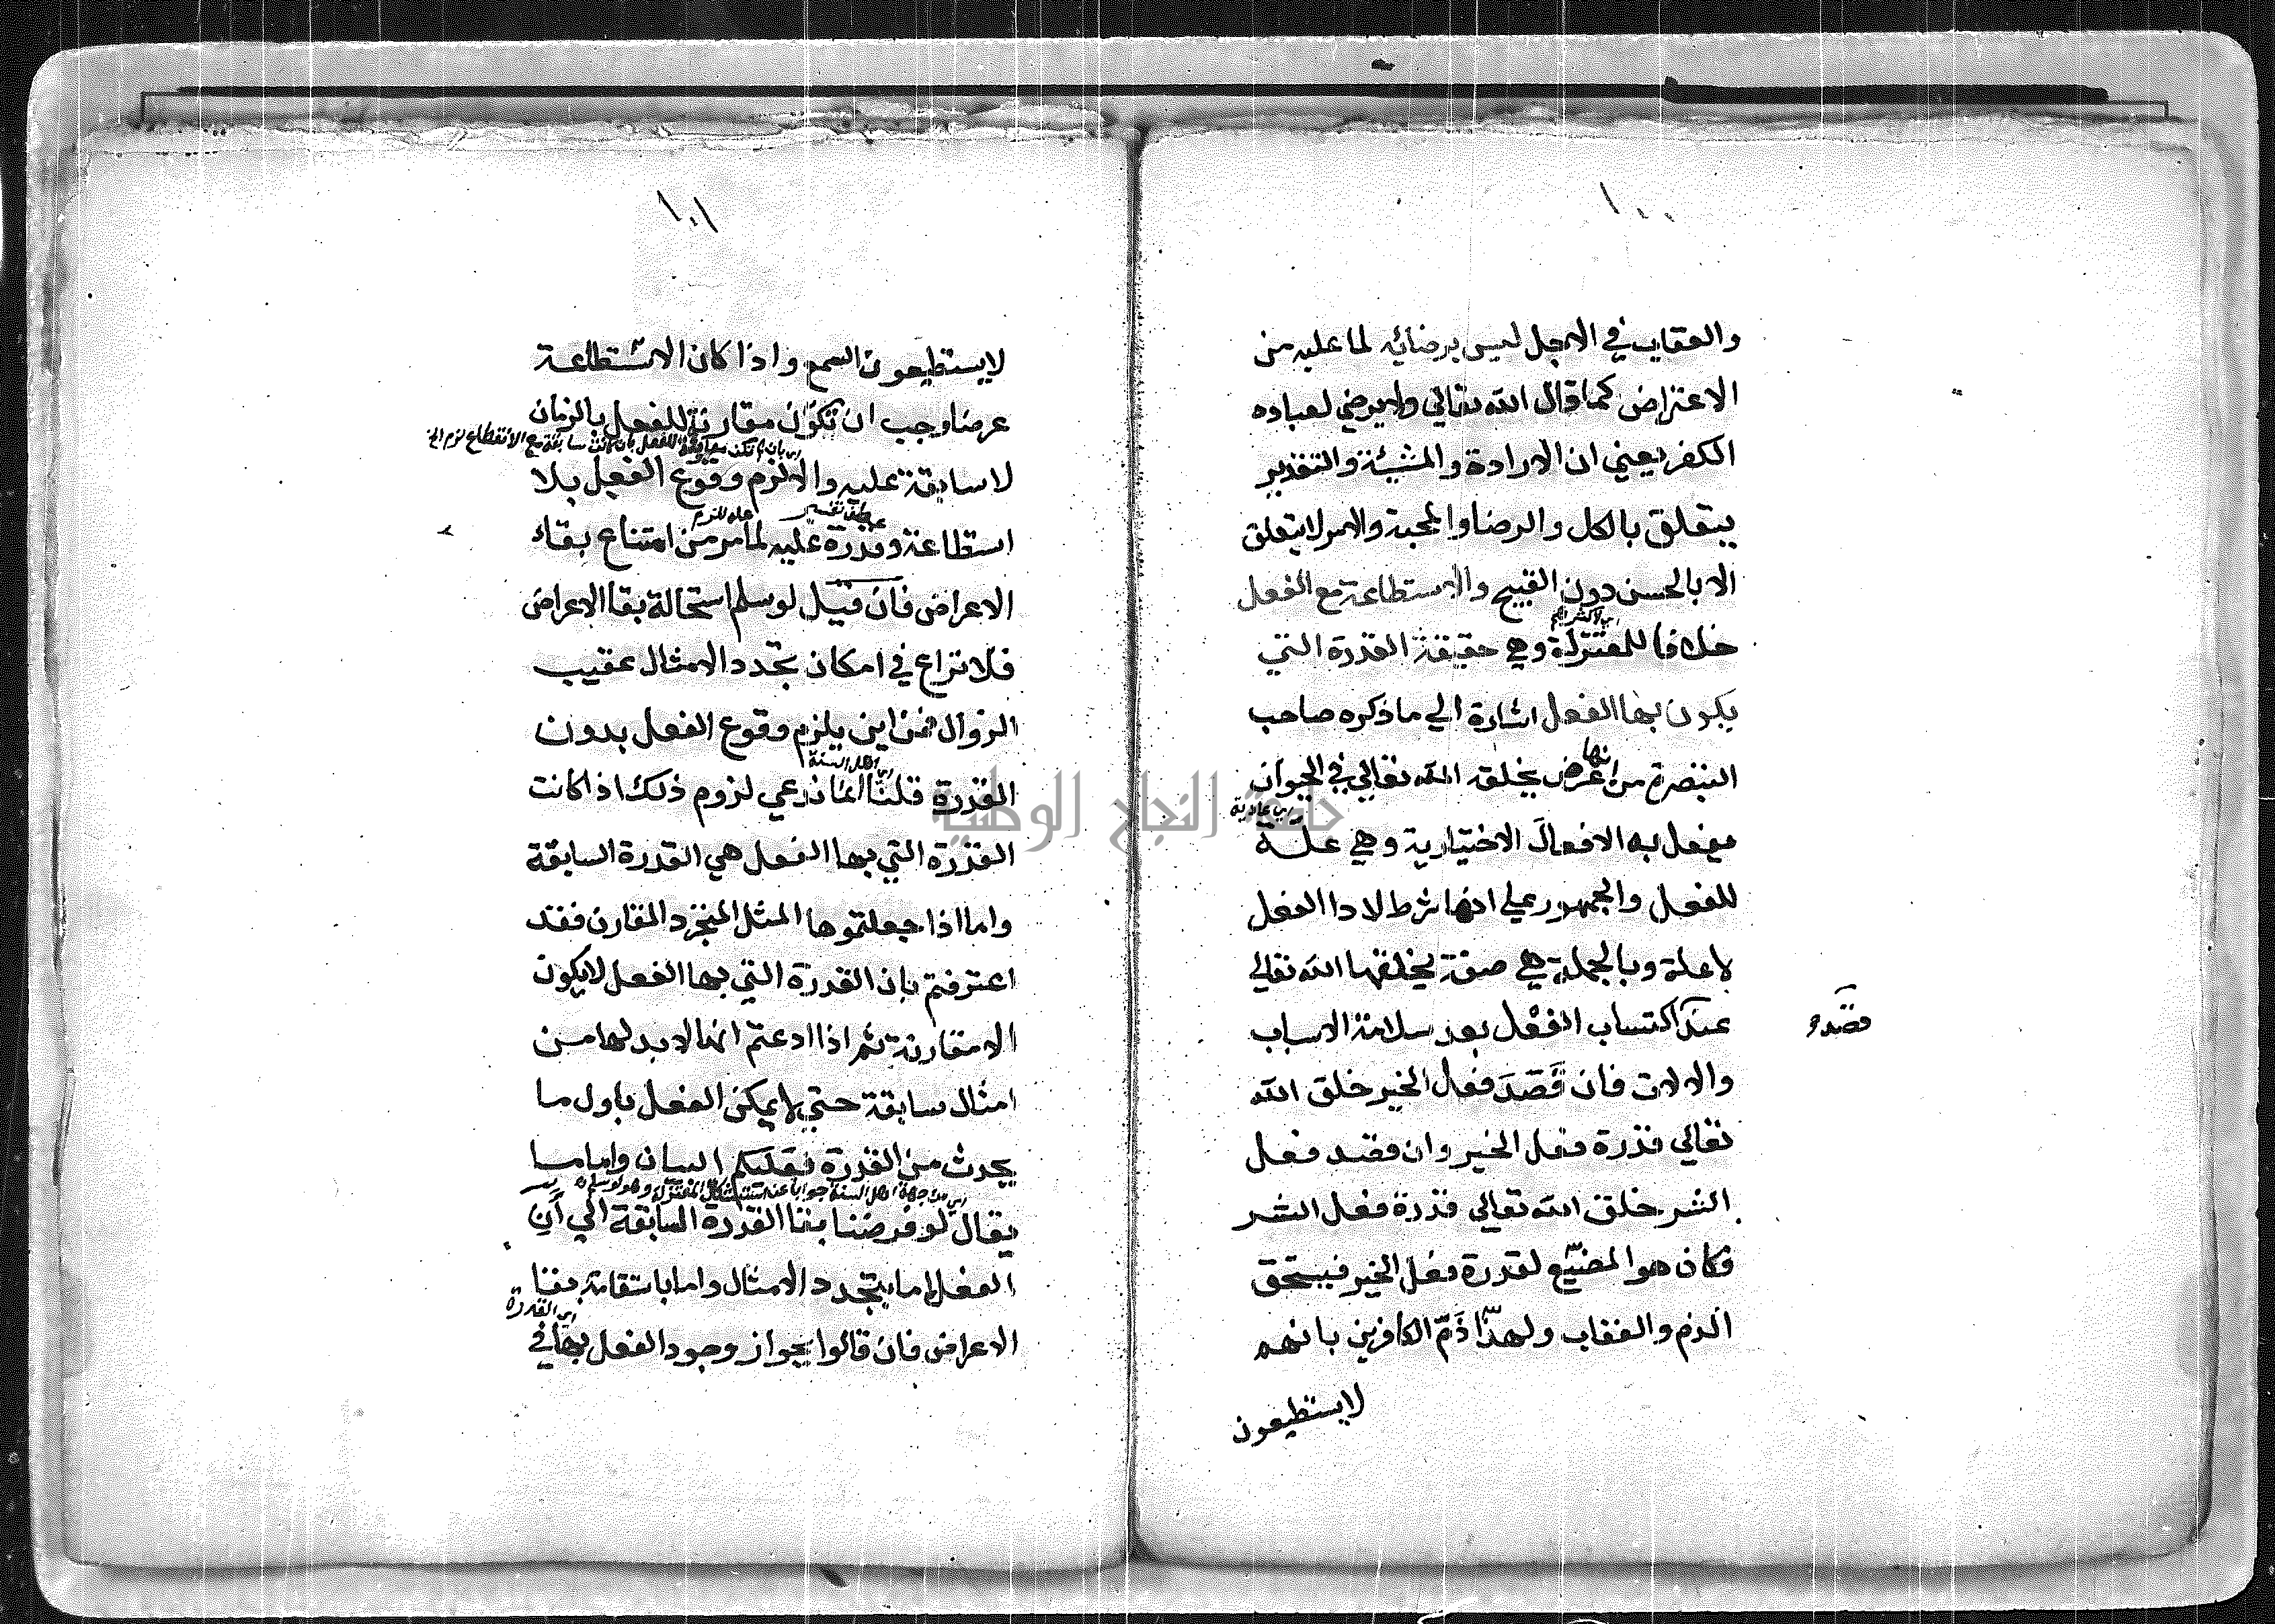 ١٠٠
والعقاب في الاجل ليس برضائه لما عليه من
الاعتراض كما قال الله تعالي ولا يرضي لعباده
الكفر يعني ان الارادة والمشيئة والتقدير
يتعلق بالكل والرضا والمحبة والامر لا يتعلق
الا بالحسن دون القبيح والاستطاعة مع الفعل
اي لاكثرهم
خلافا للمعتزلة وهي حقيقة القدرة التي
يكون بها الفعل اشارة الي ما ذكره صاحب
انها
التبصرة من عرض يخلقه الله تعالي في الحيوان
اي عادية
يفعل به الافعال الاختيارية وهي علة
للفعل والجمهور علي انها شرط لادا الفعل
لا علة وبالجملة هي صفة يخلقها الله تعالي
عند اكتساب الفعل بعد سلامة الاسباب
قصده
والالات فان قصد فعل الخير خلق الله
تعالي قدرة فعل الخير وان قصد فعل
الشر خلق الله تعالي قدرة فعل الشر
فكان هو المضيع لقدرة فعل الخير فيستحق
الذم والعقاب ولهذا ذم الكافرين بانهم
لا يستطيعون
١٠١
لا يستطيعون السمع واذا كان الاستطاعة
عرضا وجب ان تكون مقارنة للفعل بالزمان
اي بان لم تكن مقارنة للفعل بان كانت سابقة مع الانقطاع لزم الخ
لا سابقة عليه والا لزم وقوع الفعل بلا
عطف تفسير علة للزوم
استطاعة وقدرة عليه لما مر من امتناع بقاء
الاعراض فان قيل لو سلم استحالة بقا الاعراض
فلا نزاع في امكان تجدد الامثال عقيب
الزوال فمن اين يلزم وقوع الفعل بدون
اي اهل السنة
القدرة قلنا انما ندعي لزوم ذلك اذا كانت
القدرة التي بها الفعل هي القدرة السابقة
واما اذا جعلتموها المثل المتجدد المقارن فقد
اعترفتم بان القدرة التي بها الفعل لا يكون
الا مقارنة ثم اذا ادعتم انها لا بد لها من
امثال سابقة حتي لا يمكن الفعل باول ما
يحدث من القدرة فعليكم البيان واما ما
اي من جهة اهل السنة جوابا عن استشكال المعتزلة وهو لو سلم
يقال لو فرضنا بقا القدرة السابقة الي آن
الفعل اما بتجدد الامثال واما باستقامة بقا
اي القدرة
الاعراض فان قالوا بجواز وجود الفعل بها في
جامعة النجاح الوطنية